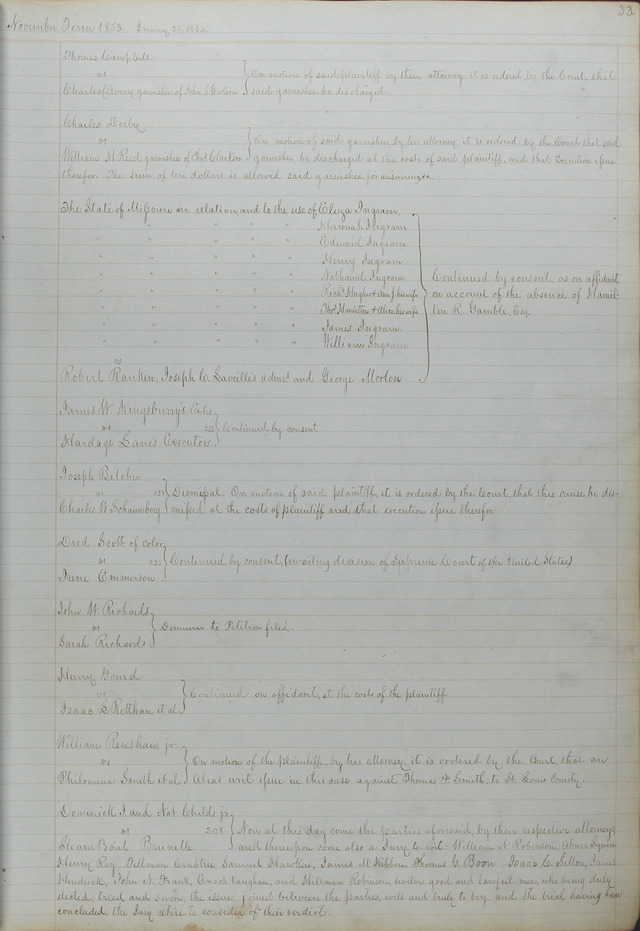 33
November Term 1853 January 25, 1854.
Thomas Campbell
vs
Charles Avery garnishee of John S Watson
On motion of said plaintiff by their attorney, it is ordered by the Court, that
said garnishee be discharged
Charles Derby
vs
William H Reed garnishee of Thos Clarkson
On motion of said garnishee by his attorney it is ordered by the Court that said
garnishee be discharged at the costs of said plaintiff, and that Execution issue
therefor. The sum of ten dollars is allowed said garnishee for answering &c.
The State of Missouri on relation and to the use of Eleza Ingram,
" " " " " Hannah Ingram
" " " " " Edward Ingram
" " " " " Henry Ingram
" " " " " Nathaniel Ingram
" " " " " Richd Hughes & Ann his wife
" " " " " Thos Hamilton & Alice his wife
" " " " " James Ingram
" " " " " William Ingram
vs
Robert Ranken, Joseph C. Laveille's admr. and George Morton
Continued by consent, as on affidavit
on account of the absence of Hamil-
ton R. Gamble, Esq.
James W. Kingsbury's Exts
vs
Hardage Lane's Executors
Continued by consent
Joseph Belcher
vs
Charles W Schaumburg
Dismissal. On motion of said plaintiff, it is ordered by the Court that this cause be dis-
missed at the costs of plaintiff and that execution issue therefor
Dred Scott, of color
vs
Irene Emmerson
Continued by consent, (awaiting decision of Supreme Court of the United States)
John W. Richards
vs
Sarah Richards
Demurrer to Petition filed.
Henry Gourd
vs
Isaac L Retthan et al.
Continued on affidavit, at the costs of the plaintiff
William Renshaw jr.
vs
Philomena Smith et al
On motion of the plaintiff, by his attorney, it is ordered by the Court, that an
Alias writ issue in this case against Thomas F. Smith, to St. Louis County.
Dominick J. and Nat. Childs jr
vs 208
Steam Boat Brunette
Now at this day come the parties aforesaid, by their respective attorneys
and thereupon come also a Jury, to wit: William N Robinson, Abner
Henry Ray, Tillman Crabtree, Samuel Hawken, James M. Hepburn, Thomas G. Boon Isaac C. James
Hendrick, John N. Frank, Enoch Vaughan, and Hillman Robinson, twelve good and lawful men, who being duly
elected, tried and sworn, the issue joined between the parties well and truly to try, and the trial having been
concluded, the Jury retire to consider of their verdict.